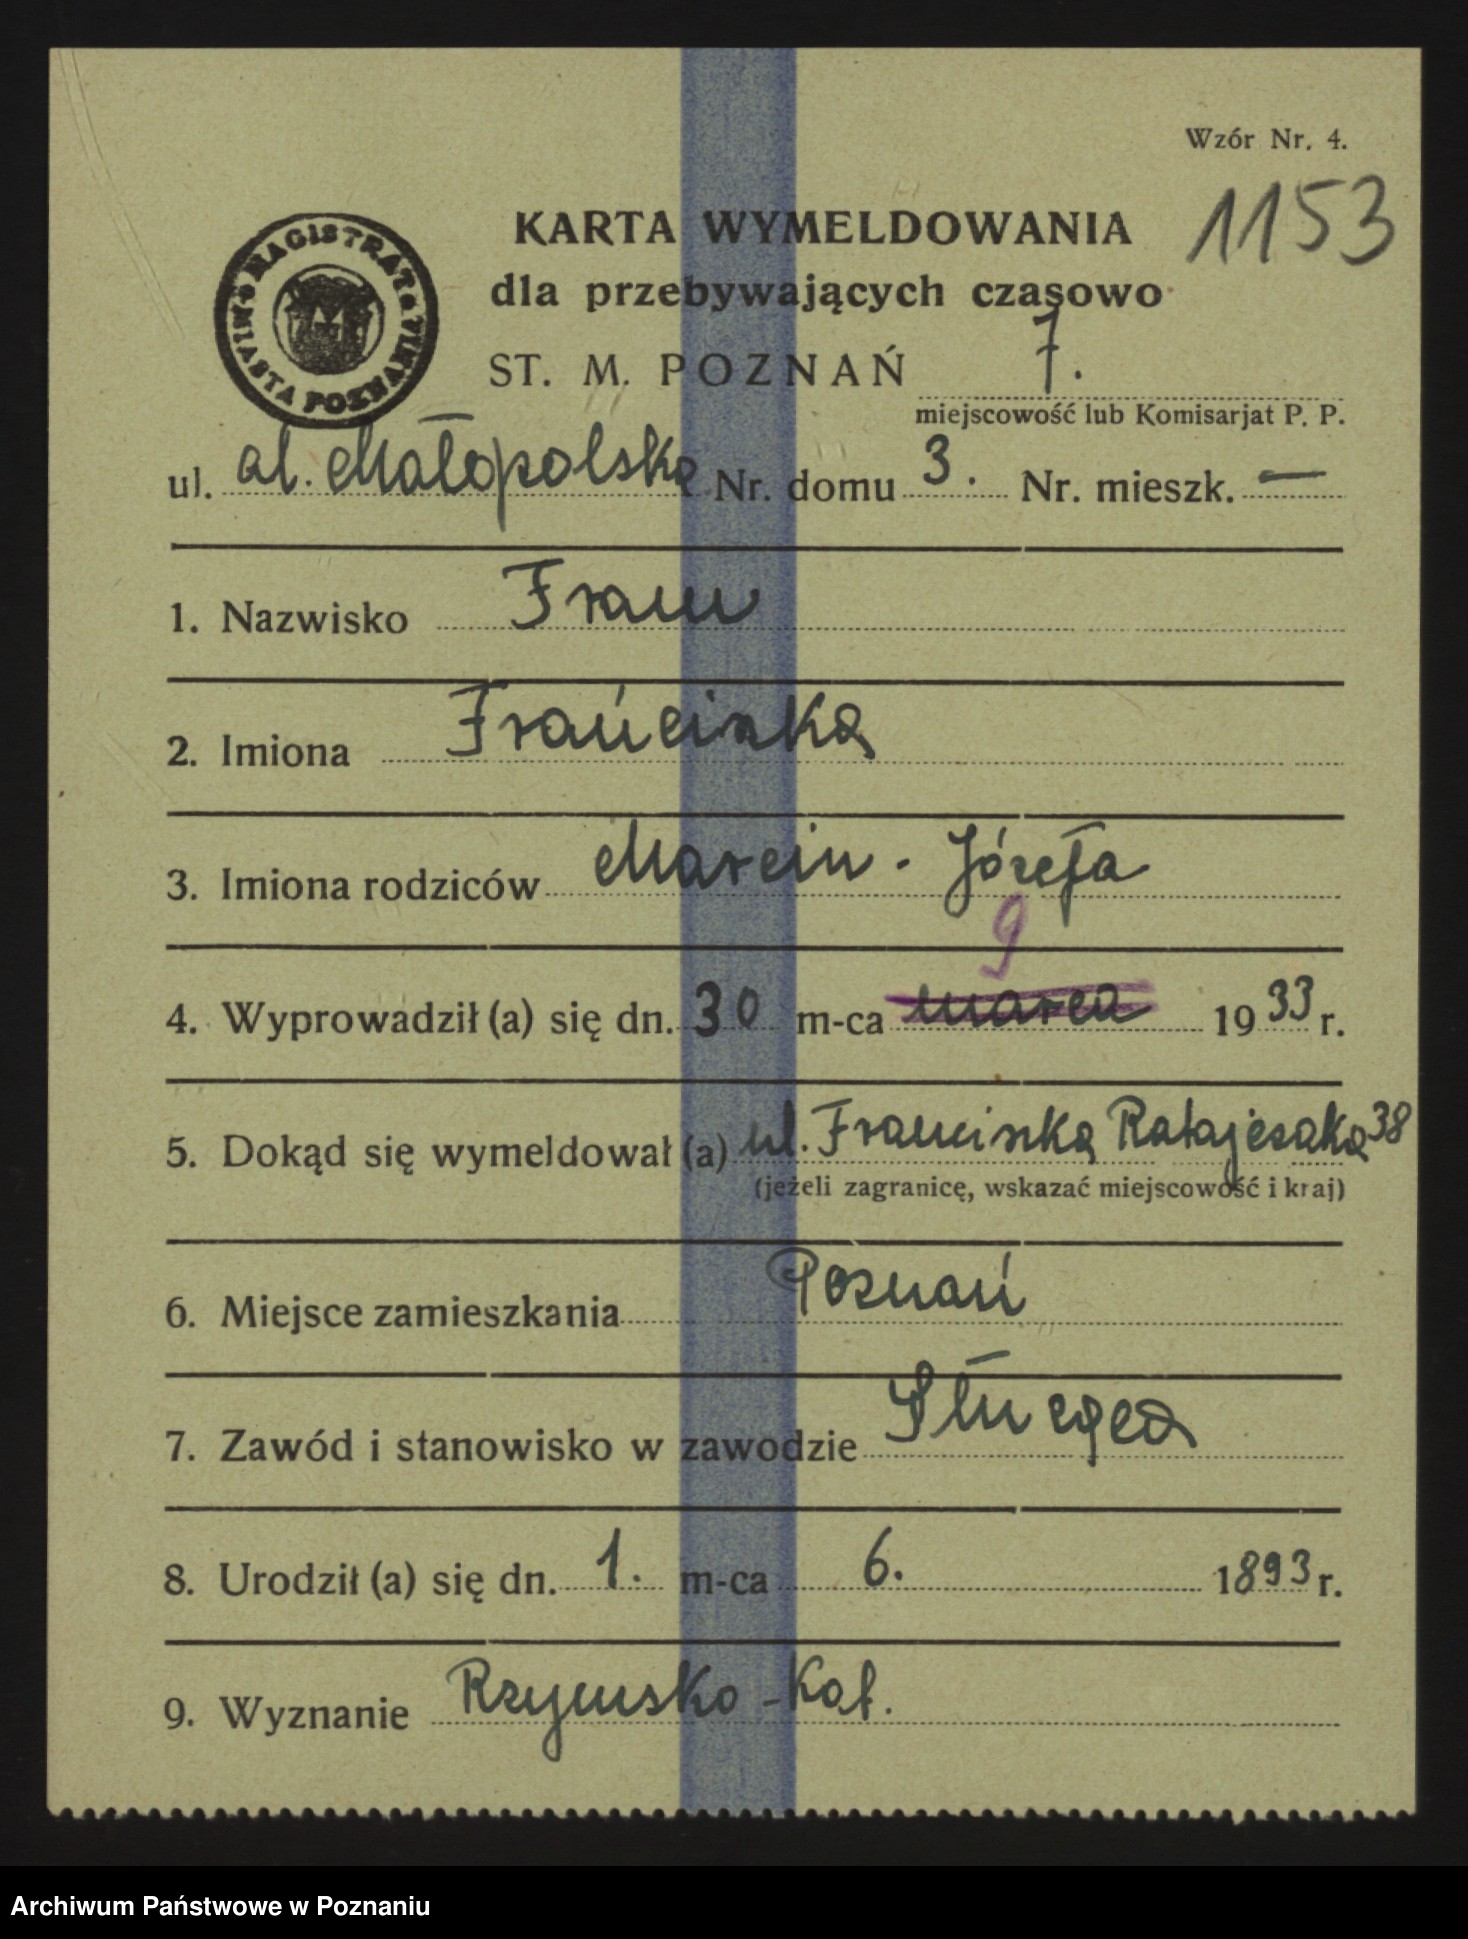 Wzór Nr. 4.
1153
KARTA WYMELDOWANIA
dla przebywających czasowo
MAGISTRAT STOŁ. MIASTA POZNANIA
ST. M. POZNAŃ 7.
miejscowość lub Komisarjat P. P.
ul. al. Małopolska Nr. domu 3. Nr. mieszk. —
1. Nazwisko Fram
2. Imiona Franciszka
3. Imiona rodziców Marcin - Józefa
9
4. Wyprowadził (a) się dn. 30 m-ca marca 1933 r.
5. Dokąd się wymeldował (a) ul. Franciszka Ratajczaka 38
(jeżeli zagranicę, wskazać miejscowość i kraj)
6. Miejsce zamieszkania Poznań
7. Zawód i stanowisko w zawodzie Służąca
8. Urodził (a) się dn. 1. m-ca 6. 1893 r.
9. Wyznanie Rzymsko-Kat.
Archiwum Państwowe w Poznaniu